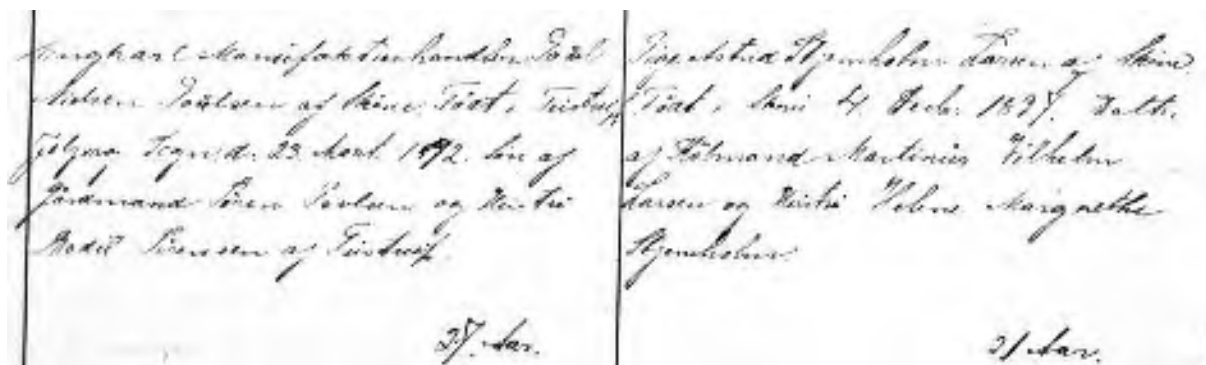 Ungkarl Manufakturhandler Poul
Nielsen Poulsen af Skive. Født i Tiistrup,
Sogn d. 23 Marts 1892. Søn af
Gårdmand Søren Poulsen og Hustru
Bodil Sørensen af Tiistrup.
27 Aar.
Pige Astrid Stjernholm Larsen af Skive.
Født i Skive 4 Decbr. 1897. Datter
af Mølmand Martinus Vilhelm
Larsen og Hustru Helene Margrethe
Stjernholm
21 Aar.